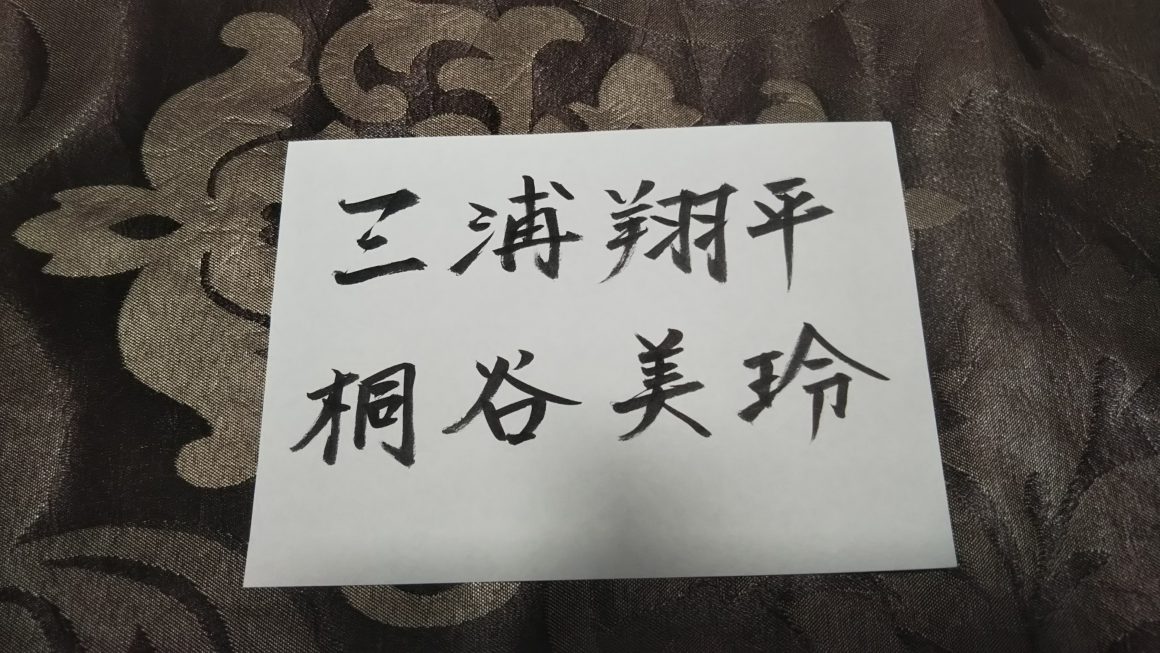 三浦翔平
桐谷美玲